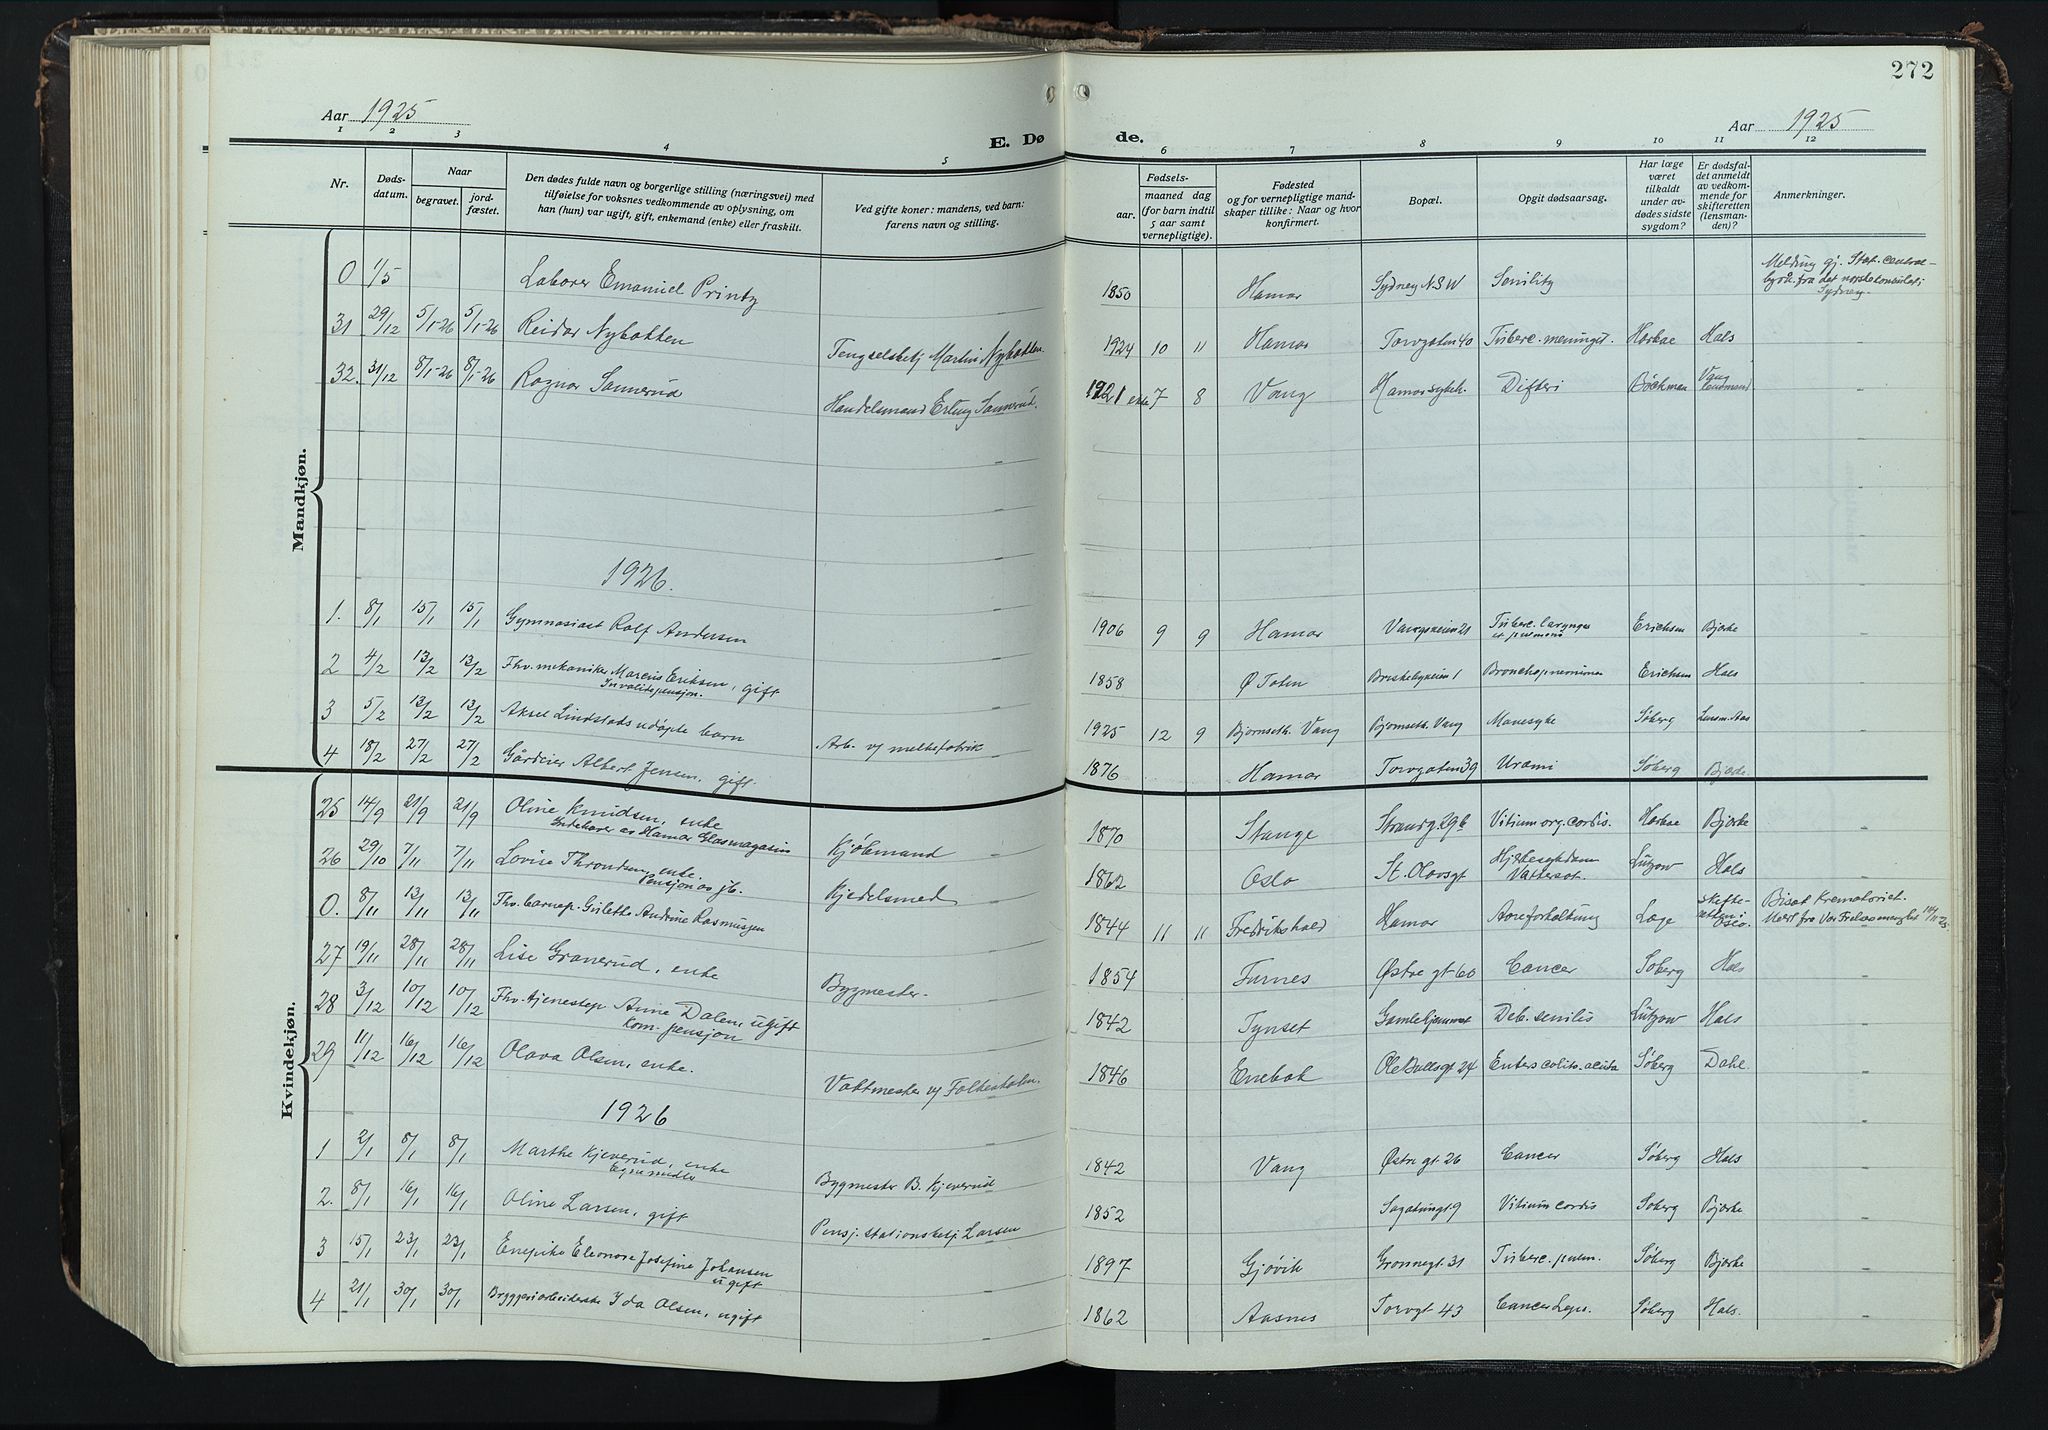 272
Aar 1925
E. Dø de.
Aar 1925
1 2 3 4 5 6 7 8 9 10 11 12
Nr. | Døds-datum. | Naar begravet. | jord-fæstet. | Den dødes fulde navn og borgerlige stilling (næringsvei) med tilføielse for voksnes vedkommende av oplysning, om han (hun) var ugift, gift, enkemand (enke) eller fraskilt. | Ved gifte koner: mandens, ved barn: farens navn og stilling. | Fødsels- aar. | maaned dag (for barn indtil 5 aar samt vernepligtige). | Fødested og for vernepligtige mandskaper tillike: Naar og hvor konfirmert. | Bopæl. | Opgit dødsaarsag. | Har læge været tilkaldt under avdødes sidste sygdom? | Er dødsfaldet anmeldt av vedkommende for skifteretten (lensmanden)? | Anmerkninger.
Mandkjøn.
0 1/5 Laborer Emanuel Printz 1850 Hamar Sydney N.S.W Senility Meldung gj. Stat. central-byrå fra det norske konsulat i Sydney
31 29/12 5/1-26 5/1-26 Reidar Nybakken Fengselsbetj Martin Nybakken 1924 10 11 Hamar Torvgaten 40 Tuberc. meningit. Harboe Hals
32. 31/12 8/1-26 8/1-26 Ragnar Sannerud Handelsmand Erling Sannerud. 1921 7 8 Vang Hamar sykeh. Difteri Böckman Vang lensmand
1926.
1. 8/1 15/1 15/1 Gymnasiast Rolf Andersen 1906 9 9 Hamar Vangsveien 21 Tuberc. larynges et pulmon. Erichsen Bjerke
2 4/2 13/2 13/2 Fhv. mekaniker Marcus Eriksen, gift Invalidepensjon. 1858 Ø Toten Briskebyveien 1 Bronchopneumonia Erichsen Hals
3 5/2 13/2 13/2 Aksel Lindstads udøpte barn Arb. v/ melkefabrik 1925 12 9 Bjørnseth. Vang Bjørnseth. Vang Mavesyke Søberg Lensm. Aas
4 18/2 27/2 27/2 Gårdeier Albert Jensen, gift. 1876 Hamar Torvgaten 39 Uræmi Søberg Bjerke
Kvindekjøn.
25 14/9 21/9 21/9 Oline Knudsen, enke Indehaver av Hamar Glasmagasin Kjøbmand 1870 Stange Strandg. 29b Vitium org. cordis. Harboe Bjerke
26 29/10 7/11 7/11 Lovise Throndsen, enke. Pensjon av jb. Kjedelsmed 1862 Oslo St. Olavsgt Hjertesykdom Vattersot. Lützow Hals
0. 8/11 13/11 13/11 Fhv. barnep. Guletta Andrine Rasmussen 1844 11 11 Fredrikshald Hamar Aareforkalkning Læge Skifteretten i Oslo. Bisat Krematoriet. Medt fra Vor Frelsers menighet
27 19/11 28/11 28/11 Lise Granerud, enke Bygmester. 1854 Furnes Østre gt 60 Cancer Søberg Hals
28 3/12 10/12 10/12 Fhv. tjenestep Anne Dalen, ugift Kom. pensjon 1842 Tynset Gamlehjemmet Deb. senilis Lützow Hals
29 11/12 16/12 16/12 Olava Olsen, enke. Vaktmester v/ Folkeskolen. 1846 Enebak Ole Bullsgt 24 Enterocolit. acuta Søberg Dahl
1926
1 2/1 8/1 8/1 Marthe Kjeverud, enke Egne midler Bygmester B. Kjeverud 1842 Vang Østre gt. 26 Cancer Søberg Hals
2. 8/1 16/1 16/1 Oline Larsen, gift Pensj. stationsbetj. Larsen 1852 Sagatungt 9 Vitium cordis Søberg Bjerke
3 15/1 23/1 23/1 Enepike Eleonore Josefine Johansen ugift 1897 Gjøvik Grønnegt. 31 Tuberc. pulm. Søberg Bjerke
4 21/1 30/1 30/1 Bryggeriarbeiderske Ida Olsen, ugift 1862 Aasnes Torvgt 43 Cancer Søberg Hals.